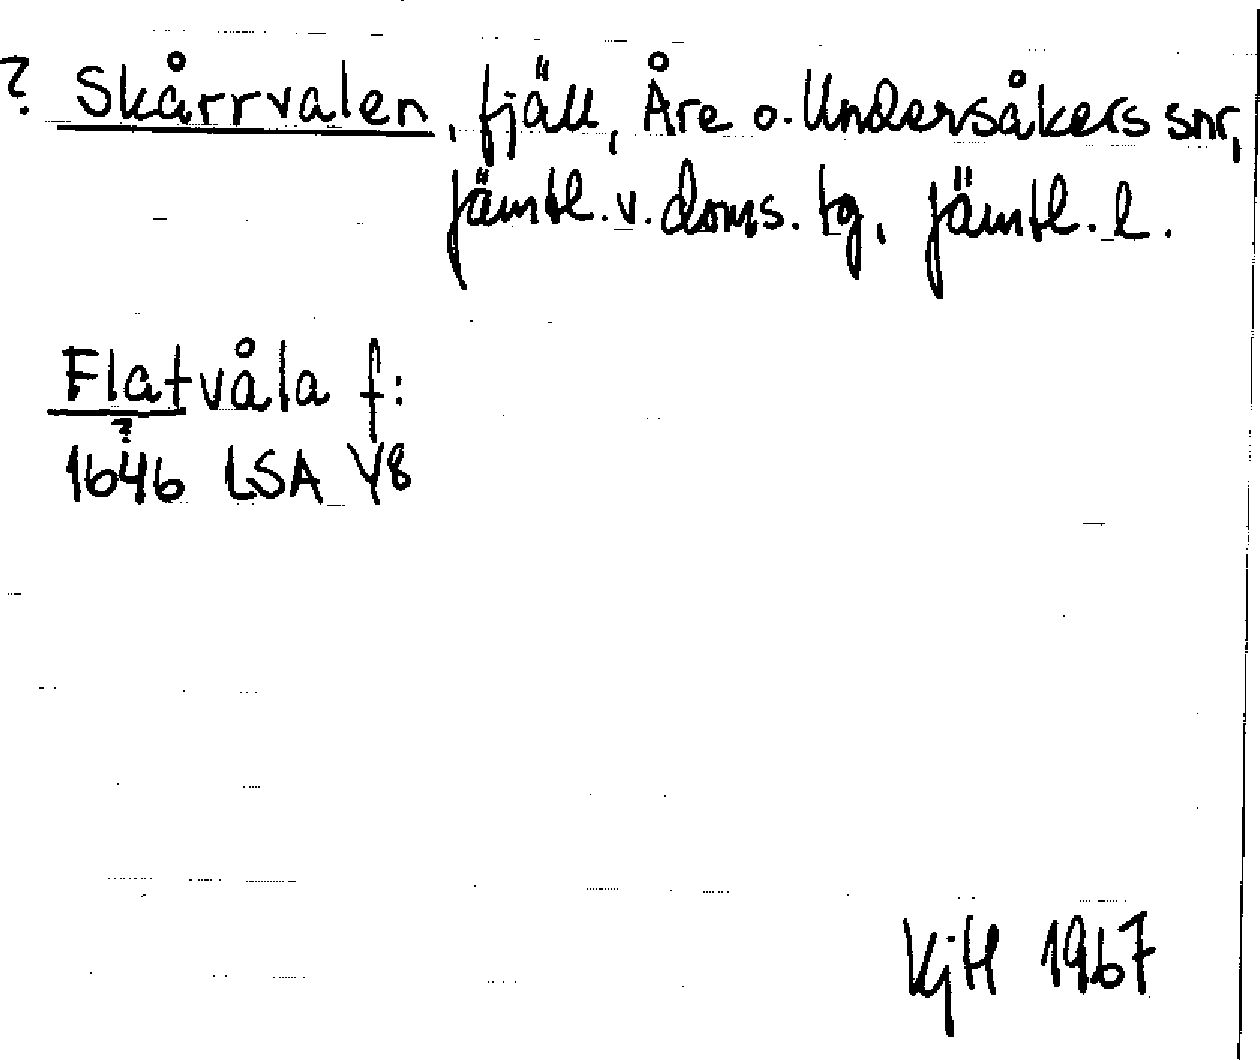 ? Skårrvalen, fjäll, Åre o. Undersåkers snr,
Jämtl. v. doms. tg, Jämtl. l.
Flatvåla f:
?
1646 LSA Y8
KjH 1967